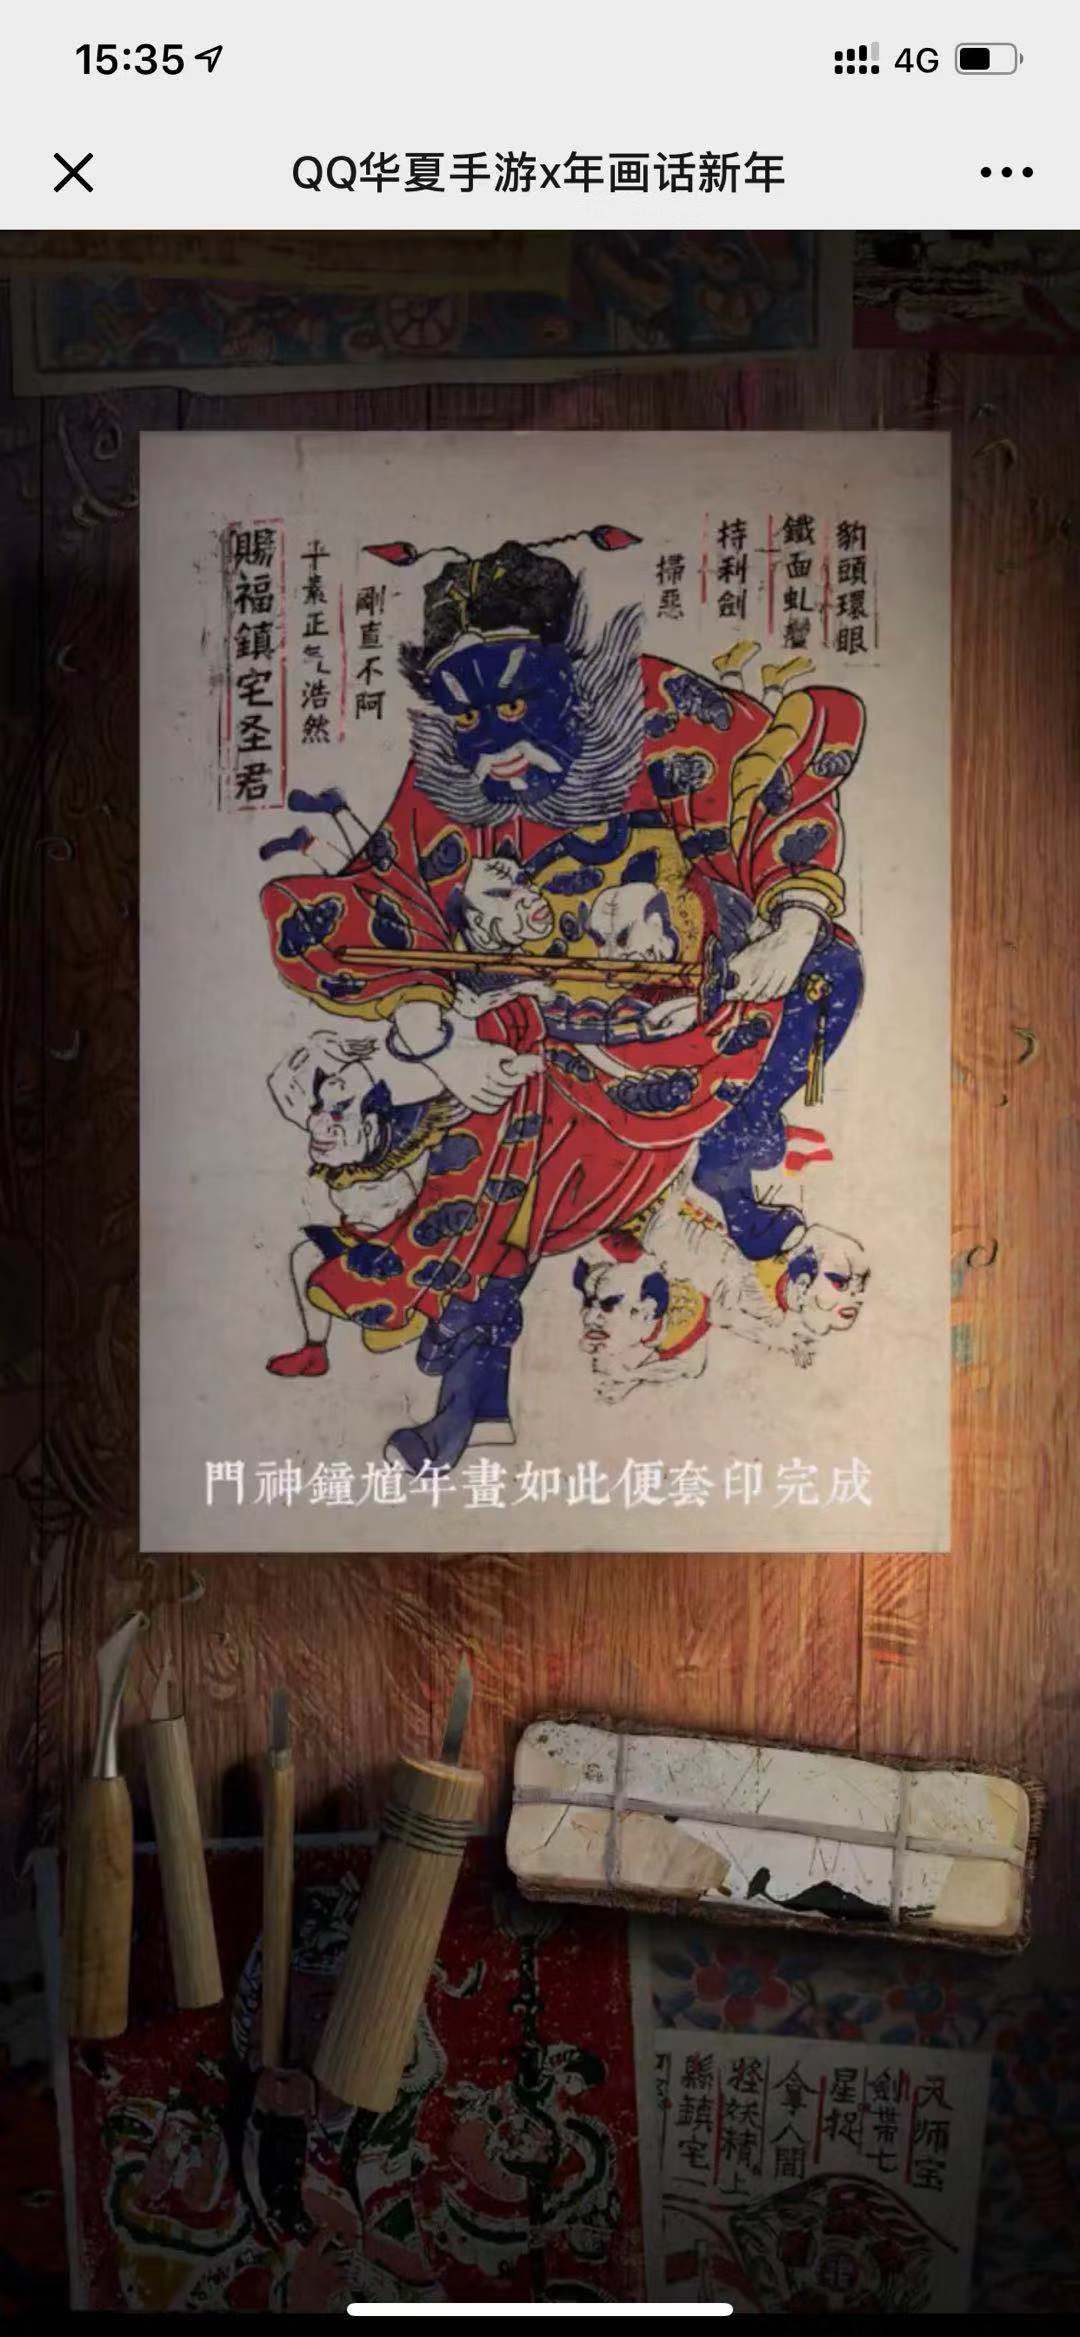 15:35
4G
QQ华夏手游x年画话新年
豹頭環眼
鐵面虬鬢
持利劍
掃惡
剛直不阿
平素正气浩然
賜福鎮宅圣君
門神鐘馗年畫如此便套印完成
天师宝
劍帶七
星捉
拿人間
怪妖精上
縣鎮宅